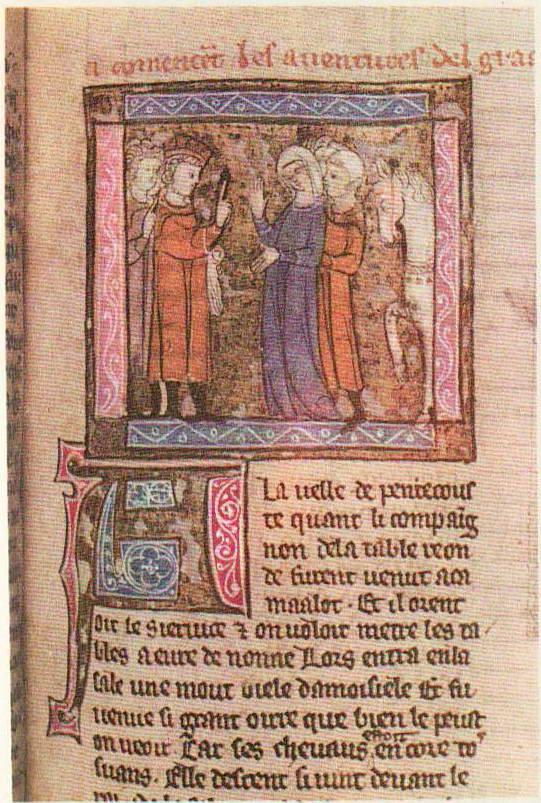 a comencēt les auentures del graa
A La uelle de pentecous
te quant li compaig
non dela table reon
de furent uenut a ca
maalot. Et il orent
oit le seruice ⁊ on uoloit metre les ta
bles a eure de nonne Lors entra en la
sale une mout biele damoisiele Et fu
uenue si grant oirre que bien le peust
on ueoir Car ses cheuaus estoit encore to⁹
suans. Elle descent si uint deuant le